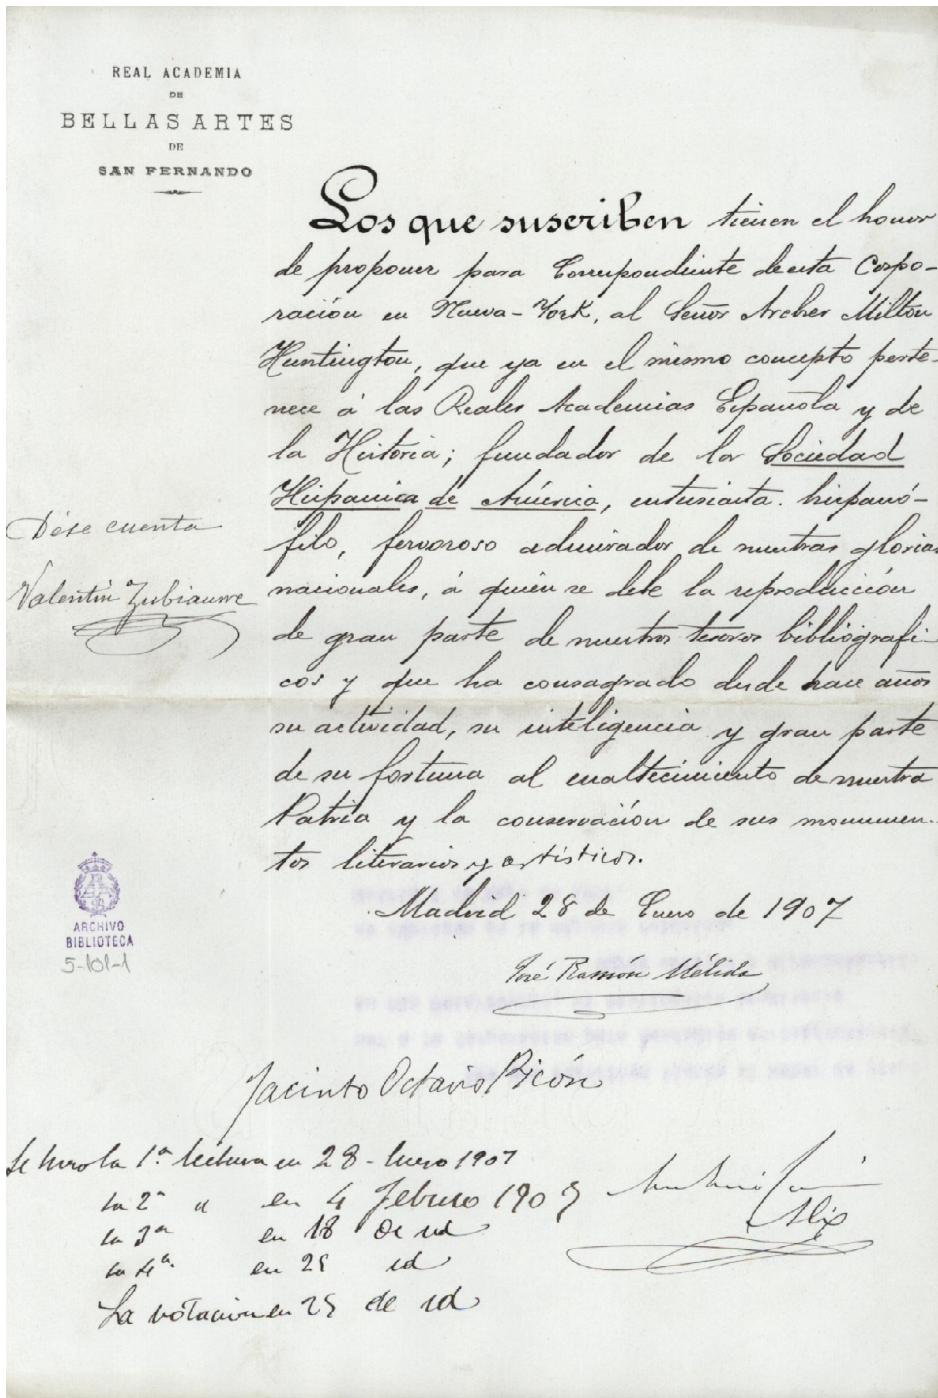 REAL ACADEMIA
DE
BELLAS ARTES
DE
SAN FERNANDO
Los que suscriben tienen el honor
de proponer para Correspondiente de esta Corpo-
ración en Nueva-York, al Señor Archer Milton
Huntington, que ya en el mismo concepto perte-
nece á las Reales Academias Española y de
la Historia; fundador de la Sociedad
Hispanica de América, entusiasta hispanó-
filo, fervoroso admirador de nuestras glorias
nacionales, á quien se debe la reproducción
de gran parte de nuestros tesoros bibliografi-
cos y que ha consagrado desde hace años
su actividad, su inteligencia y gran parte
de su fortuna al enaltecimiento de nuestra
Patria y la conservación de sus monumen-
tos literarios y artísticos.
Madrid 28 de Enero de 1907
Dése cuenta
Valentín Zubiaurre
ARCHIVO
BIBLIOTECA
5-101-1
José Ramón Mélida
Jacinto Octavio Picón
Se hizo la 1.ª lectura en 28 - Enero 1907
la 2ª " en 4 Febrero 190
la 3ª en 18 de id
la 4ª en 25 id
La votación en 25 de id